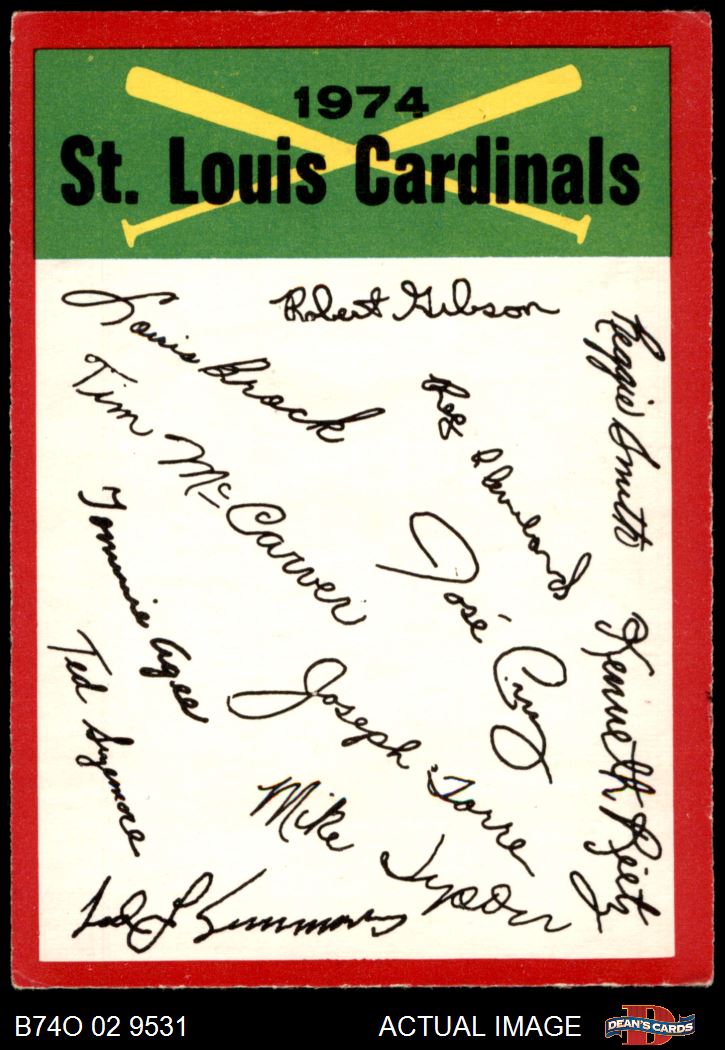 1974
St. Louis Cardinals
Robert Gibson
Louis Brock
Reggie Smith
Tim McCarver
Reg Cleveland
José Cruz
Tommie Agee
Kenneth Reitz
Ted Sizemore
Joseph Torre
Mike Tyson
Ted L Simmons
B74O 02 9531
ACTUAL IMAGE
D
DEAN'S CARDS